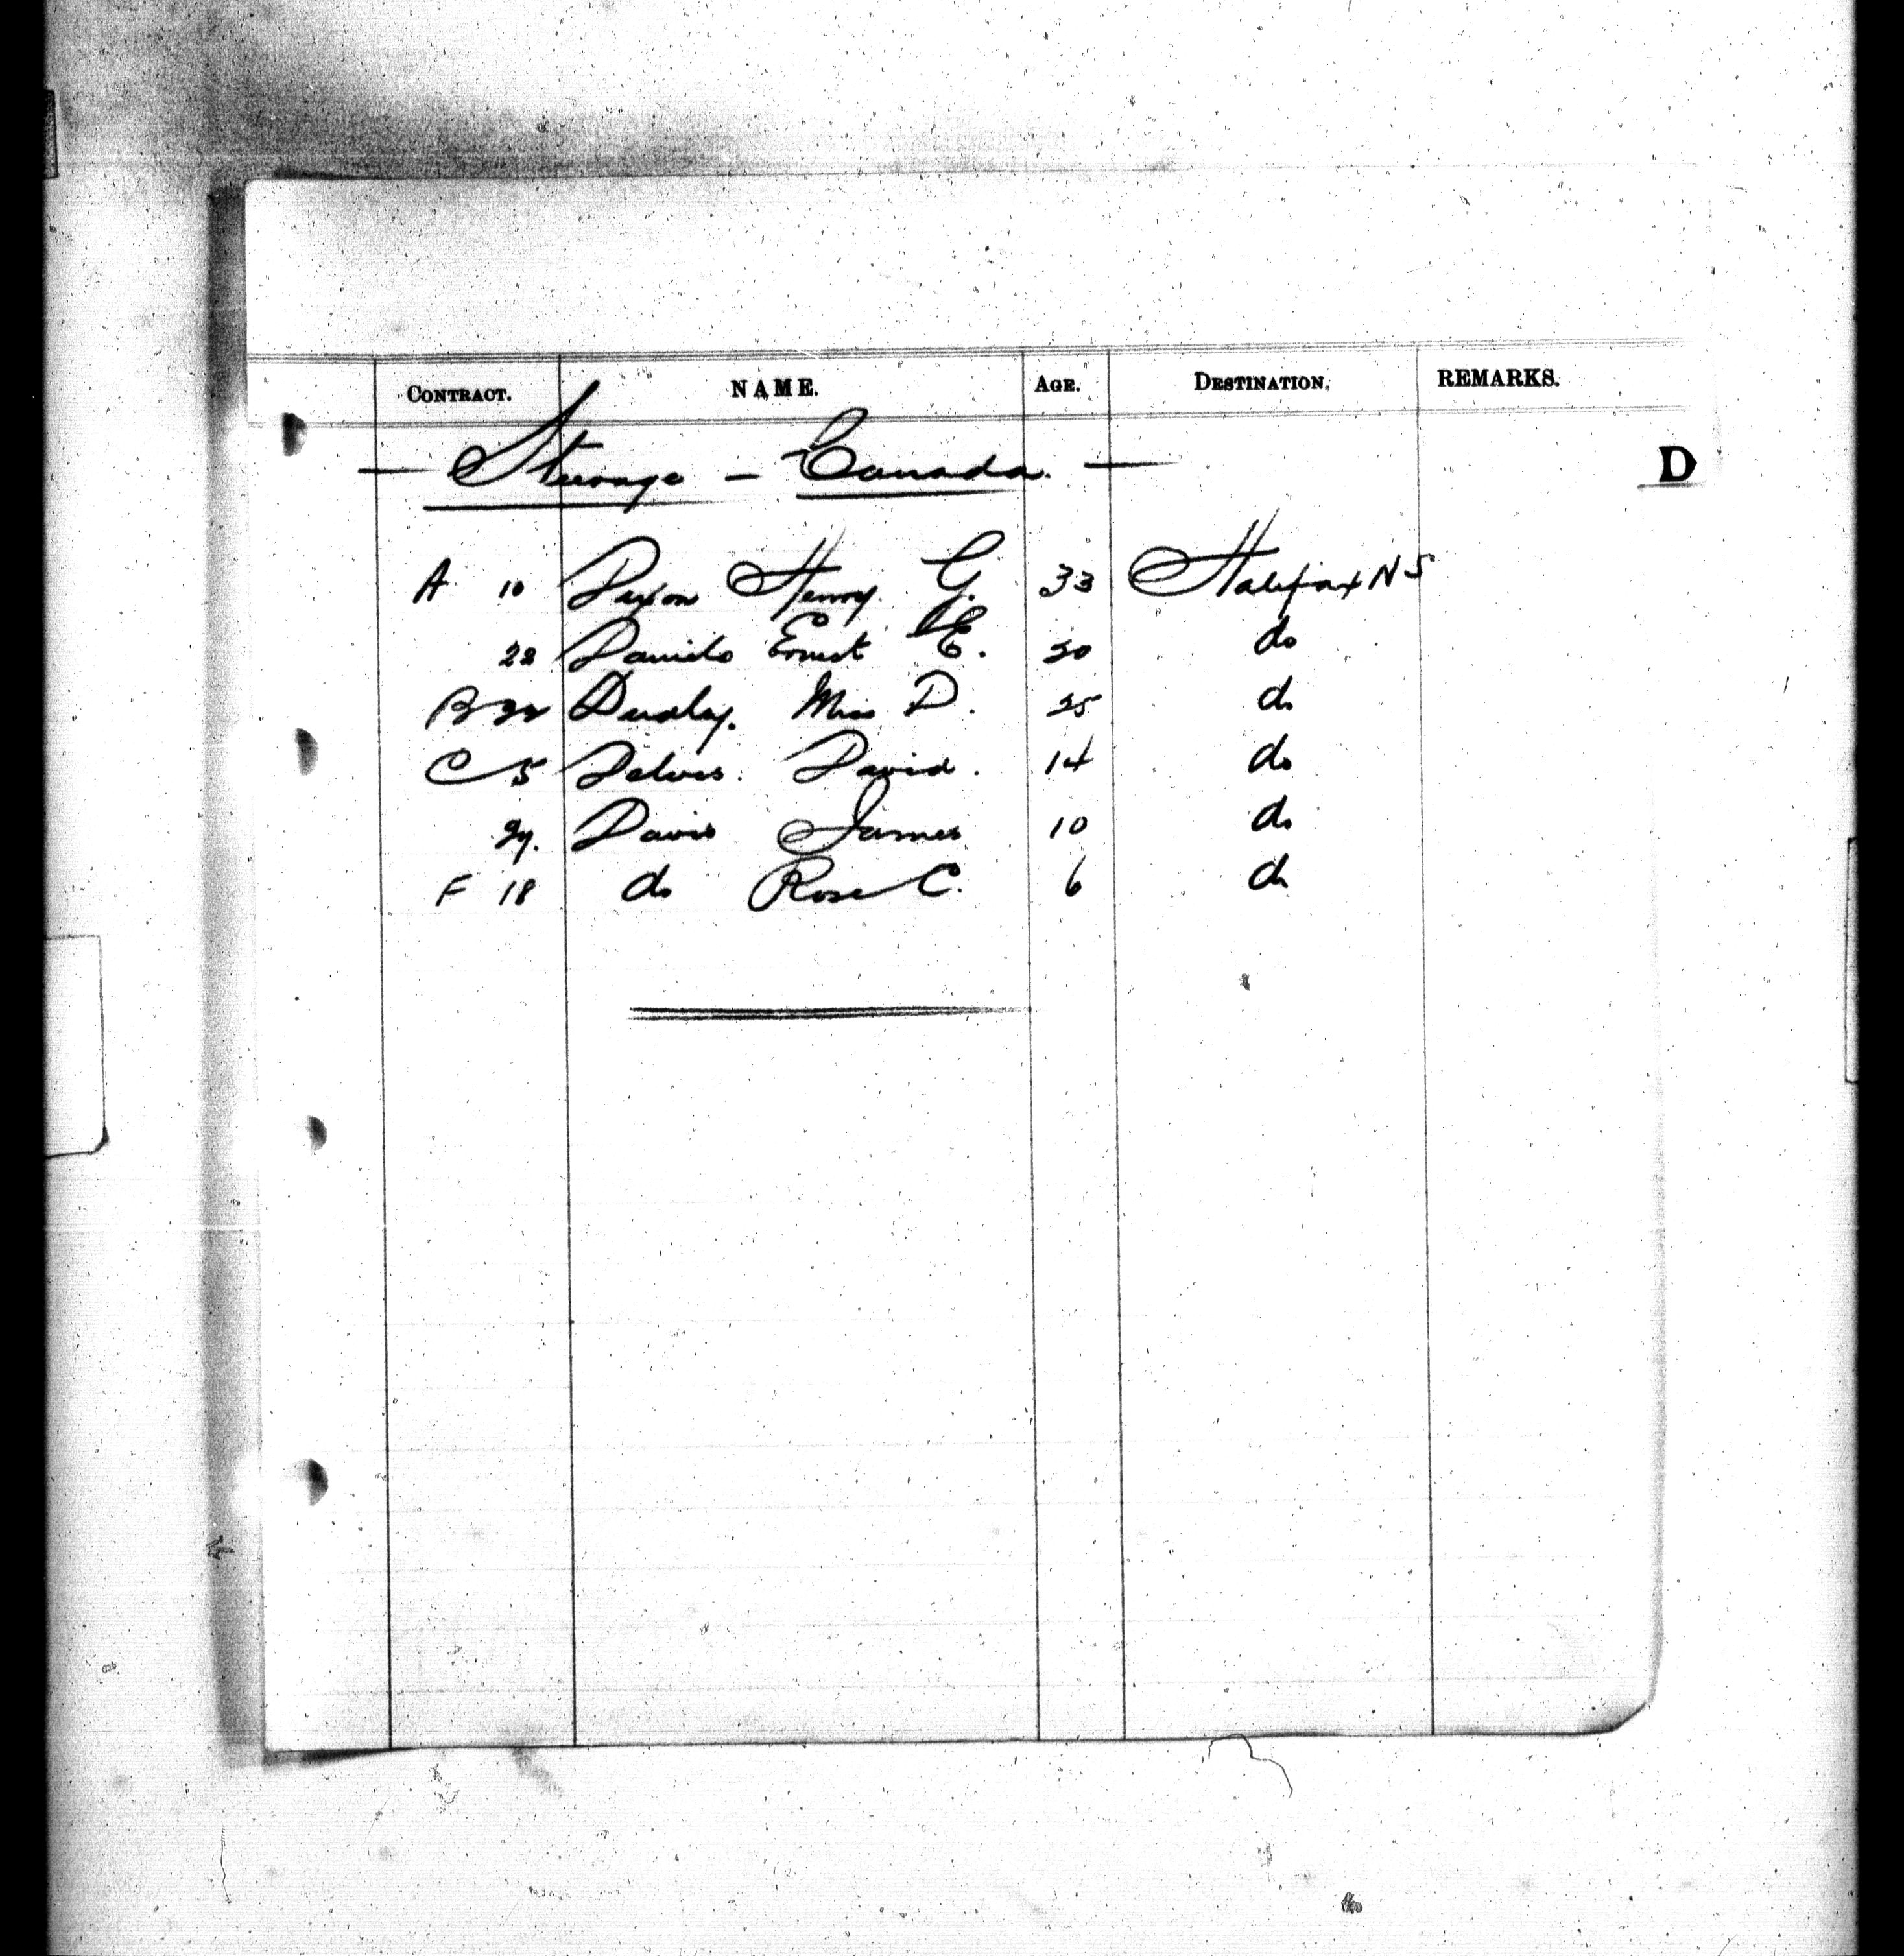 CONTRACT. NAME. AGE. DESTINATION. REMARKS.
Steerage - Canada.
D
A 10 Dixon Henry G. 33 Halifax N S
22 Daniels Ernest E. 20 do
B 32 Miss D. 25 do
C 5 Delves. David. 14 do
29. Davis James 10 do
F 18 do Rose C. 6 do